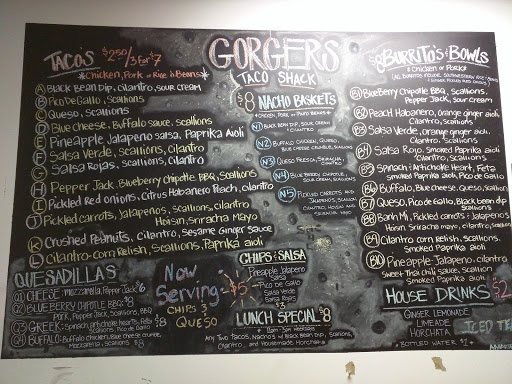 GORGERS
TACO SHACK
TACO'S $2.50/3 for $7
*Chicken, Pork or Rice & Beans*
A Black Bean Dip, cilantro, sour cream
B Pico De Gallo, Scallions
C Queso, Scallions
D Blue cheese, Buffalo sauce, scallions
E Pineapple Jalapeno salsa, Paprika Aioli
F Salsa Verde, scallions, cilantro
G Salsa Rojas, scallions, cilantro
H Pepper Jack, Blueberry chipotle BBQ, Scallions
I Pickled Red onions, Citrus Habanero Peach, cilantro
J Pickled carrots, Jalapenos, scallions, cilantro
Hoisin, Sriracha Mayo
K Crushed Peanuts, cilantro, Sesame Ginger Sauce
L Cilantro-corn Relish, Scallions, Paprika aioli
QUESADILLAS
Q1 CHEESE: Mozzarella, Pepper Jack $6
Q2 BLUEBERRY CHIPOTLE BBQ: $8
Pork, Pepper Jack, Scallions, BBQ
Q3 GREEK: Spinach, artichoke hearts, Feta $8
Scallions, Pico de Gallo
Q4 BUFFALO: Chicken, Blue cheese crumble,
Mozzarella, Scallions $
$8 NACHO BASKETS
*Chicken, Pork or Pinto Beans*
N1 Black Bean Dip, Sour Cream
& Cilantro
N2 Buffalo Chicken, Queso,
Blue cheese crumble, Scallions
N3 Queso Fresca, Sriracha,
N4 Blueberry Chipotle,
Sour cream, Scallions
N5 Pickled Carrots and
Jalapenos, Scallions
Cilantro, Hoisin and
Sriracha Mayo
Now
Serving
CHIPS &
QUESO
$5
CHIPS & SALSA
Pineapple Jalapeno
Salsa
Pico de Gallo
Salsa Verde
Salsa Rojas
$3
LUNCH SPECIAL $8
11am-3pm Weekdays
Any Two Tacos, Nachos w/ Black Bean Dip, Scallions,
Cilantro, and Housemade Horchata
BURRITO'S & BOWLS
*Chicken or Pork*
(All Burritos include Southwestern Rice
B1 BlueBerry Chipotle BBQ, Scallions,
Pepper Jack, Sour cream
B2 Peach Habanero, Orange ginger aioli
Cilantro, Scallions
B3 Salsa Verde, orange ginger aioli,
Cilantro, Scallions
B4 Salsa Rojo, Smoked Paprika aioli
Cilantro, Scallions
B5 Spinach, Artichoke Heart, Feta
Smoked Paprika Aioli, Scallions
B6 Buffalo, Blue cheese, Queso, Scallions
B7 Queso, Pico de Gallo, Black bean dip
Scallions
B8 Banh Mi, Pickled carrots & Jalapenos
Hoisin, Sriracha mayo, cilantro, Scallions
B9 Cilantro-corn relish, Scallions,
Smoked Paprika aioli
B10 Pineapple-Jalapeno, cilantro
Sweet Thai chili sauce, Scallions
Smoked Paprika Aioli
HOUSE DRINKS $2
GINGER LEMONADE
LIMEADE
HORCHATA
ICED TEA
* BOTTLED WATER $1 *